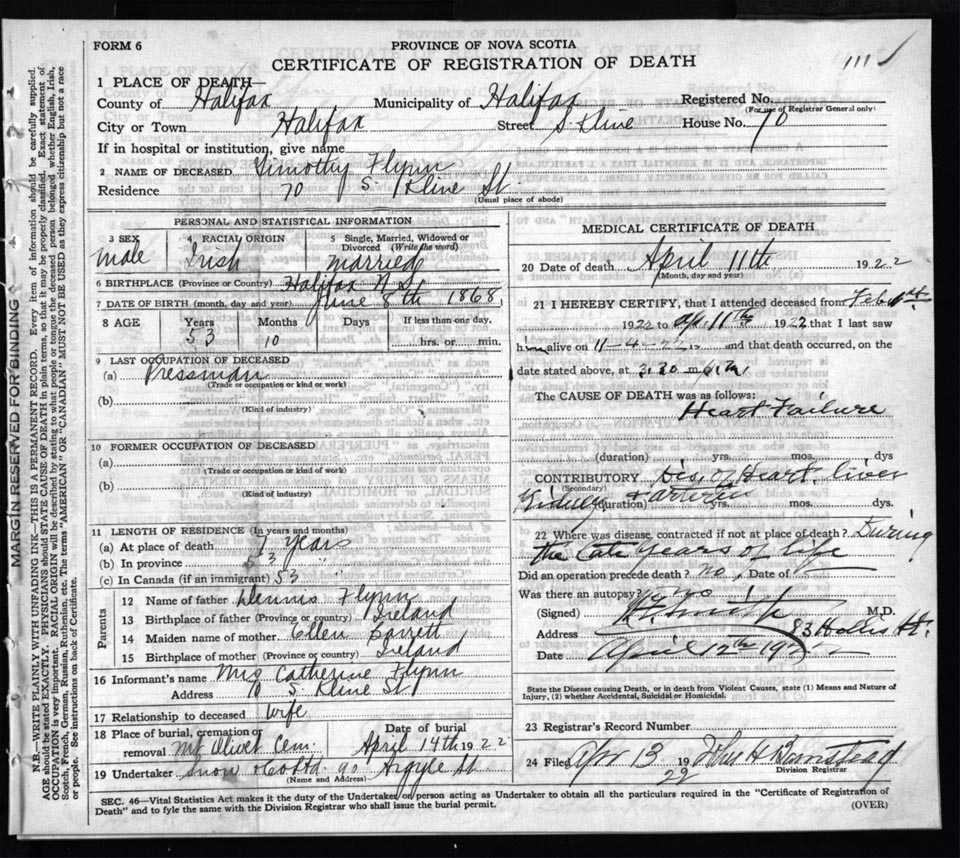 FORM 6
PROVINCE OF NOVA SCOTIA
CERTIFICATE OF REGISTRATION OF DEATH
1 PLACE OF DEATH—
County of Halifax Municipality of Halifax Registered No.
(For use of Registrar General only)
City or Town Halifax Street S. Kline House No. 70
If in hospital or institution, give name
2 NAME OF DECEASED Timothy Flynn
Residence 70 S. Kline St
(Usual place of abode)
PERSONAL AND STATISTICAL INFORMATION
3 SEX male
4 RACIAL ORIGIN Irish
5 Single, Married, Widowed or Divorced (Write the word) married
6 BIRTHPLACE (Province or Country) Halifax N.S.
7 DATE OF BIRTH (month, day and year) June 8th 1868
8 AGE Years 53 Months 10 Days If less than one day, hrs. or min.
9 LAST OCCUPATION OF DECEASED
(a) Pressman
(Trade or occupation or kind or work)
(b)
(Kind of industry)
10 FORMER OCCUPATION OF DECEASED
(a)
(Trade or occupation or kind or work)
(b)
(Kind of industry)
11 LENGTH OF RESIDENCE (In years and months)
(a) At place of death 7 years
(b) In province 53 "
(c) In Canada (if an immigrant) 53 "
Parents
12 Name of father Dennis Flynn
13 Birthplace of father (Province or country) Ireland
14 Maiden name of mother Ellen Barrett
15 Birthplace of mother (Province or country) Ireland
16 Informant's name Mrs Catherine Flynn
Address 70 S. Kline St
17 Relationship to deceased Wife
18 Place of burial, cremation or removal Mt Olivet Cem. Date of burial April 14th 1922
19 Undertaker Snow & Co Ltd. 90 Argyle St
(Name and Address)
MEDICAL CERTIFICATE OF DEATH
20 Date of death April 11th 1922
(Month, day and year)
21 I HEREBY CERTIFY, that I attended deceased from Feb. 1st
1922 to Ap. 11th 1922 that I last saw
him alive on 11-4-22 and that death occurred, on the
date stated above, at 3.30
The CAUSE OF DEATH was as follows:
Heart Failure
(duration) yrs. mos. dys
CONTRIBUTORY Dis. of Heart, liver
(Secondary)
Kidney & arteries (duration) yrs. mos. dys.
22 Where was disease, contracted if not at place of death? During
the late years of life
Did an operation precede death? no Date of
Was there an autopsy? no
(Signed) Smith M.D.
Address 83 Hollis St.
Date April 12th 1922
State the Disease causing Death, or in death from Violent Causes, state (1) Means and Nature of
Injury, (2) whether Accidental, Suicidal or Homicidal.
23 Registrar's Record Number
24 Filed Apr 13 1922 John H Barnstead
Division Registrar
SEC. 46—Vital Statistics Act makes it the duty of the Undertaker or person acting as Undertaker to obtain all the particulars required in the "Certificate of Registration of
Death" and to fyle the same with the Division Registrar who shall issue the burial permit.
(OVER)
MARGIN RESERVED FOR BINDING
N.B.—WRITE PLAINLY WITH UNFADING INK—THIS IS A PERMANENT RECORD. Every item of information should be carefully supplied.
AGE should be stated EXACTLY. PHYSICIANS should STATE CAUSE OF DEATH in plain terms, so that it may be properly classified. Exact statement of
OCCUPATION is very important. RACIAL ORIGIN will be described by stating to what people or tongue the deceased person belonged whether English, Irish,
Scotch, French, German, Russian, Ruthenian, etc. The terms "AMERICAN" OR "CANADIAN" MUST NOT BE USED as they express citizenship but not a race
or people. See instructions on back of Certificate.